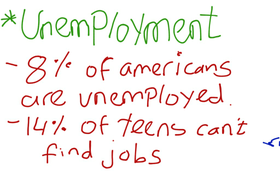 *Unemployment
- 8% of americans
are unemployed.
- 14% of teens can't
find jobs